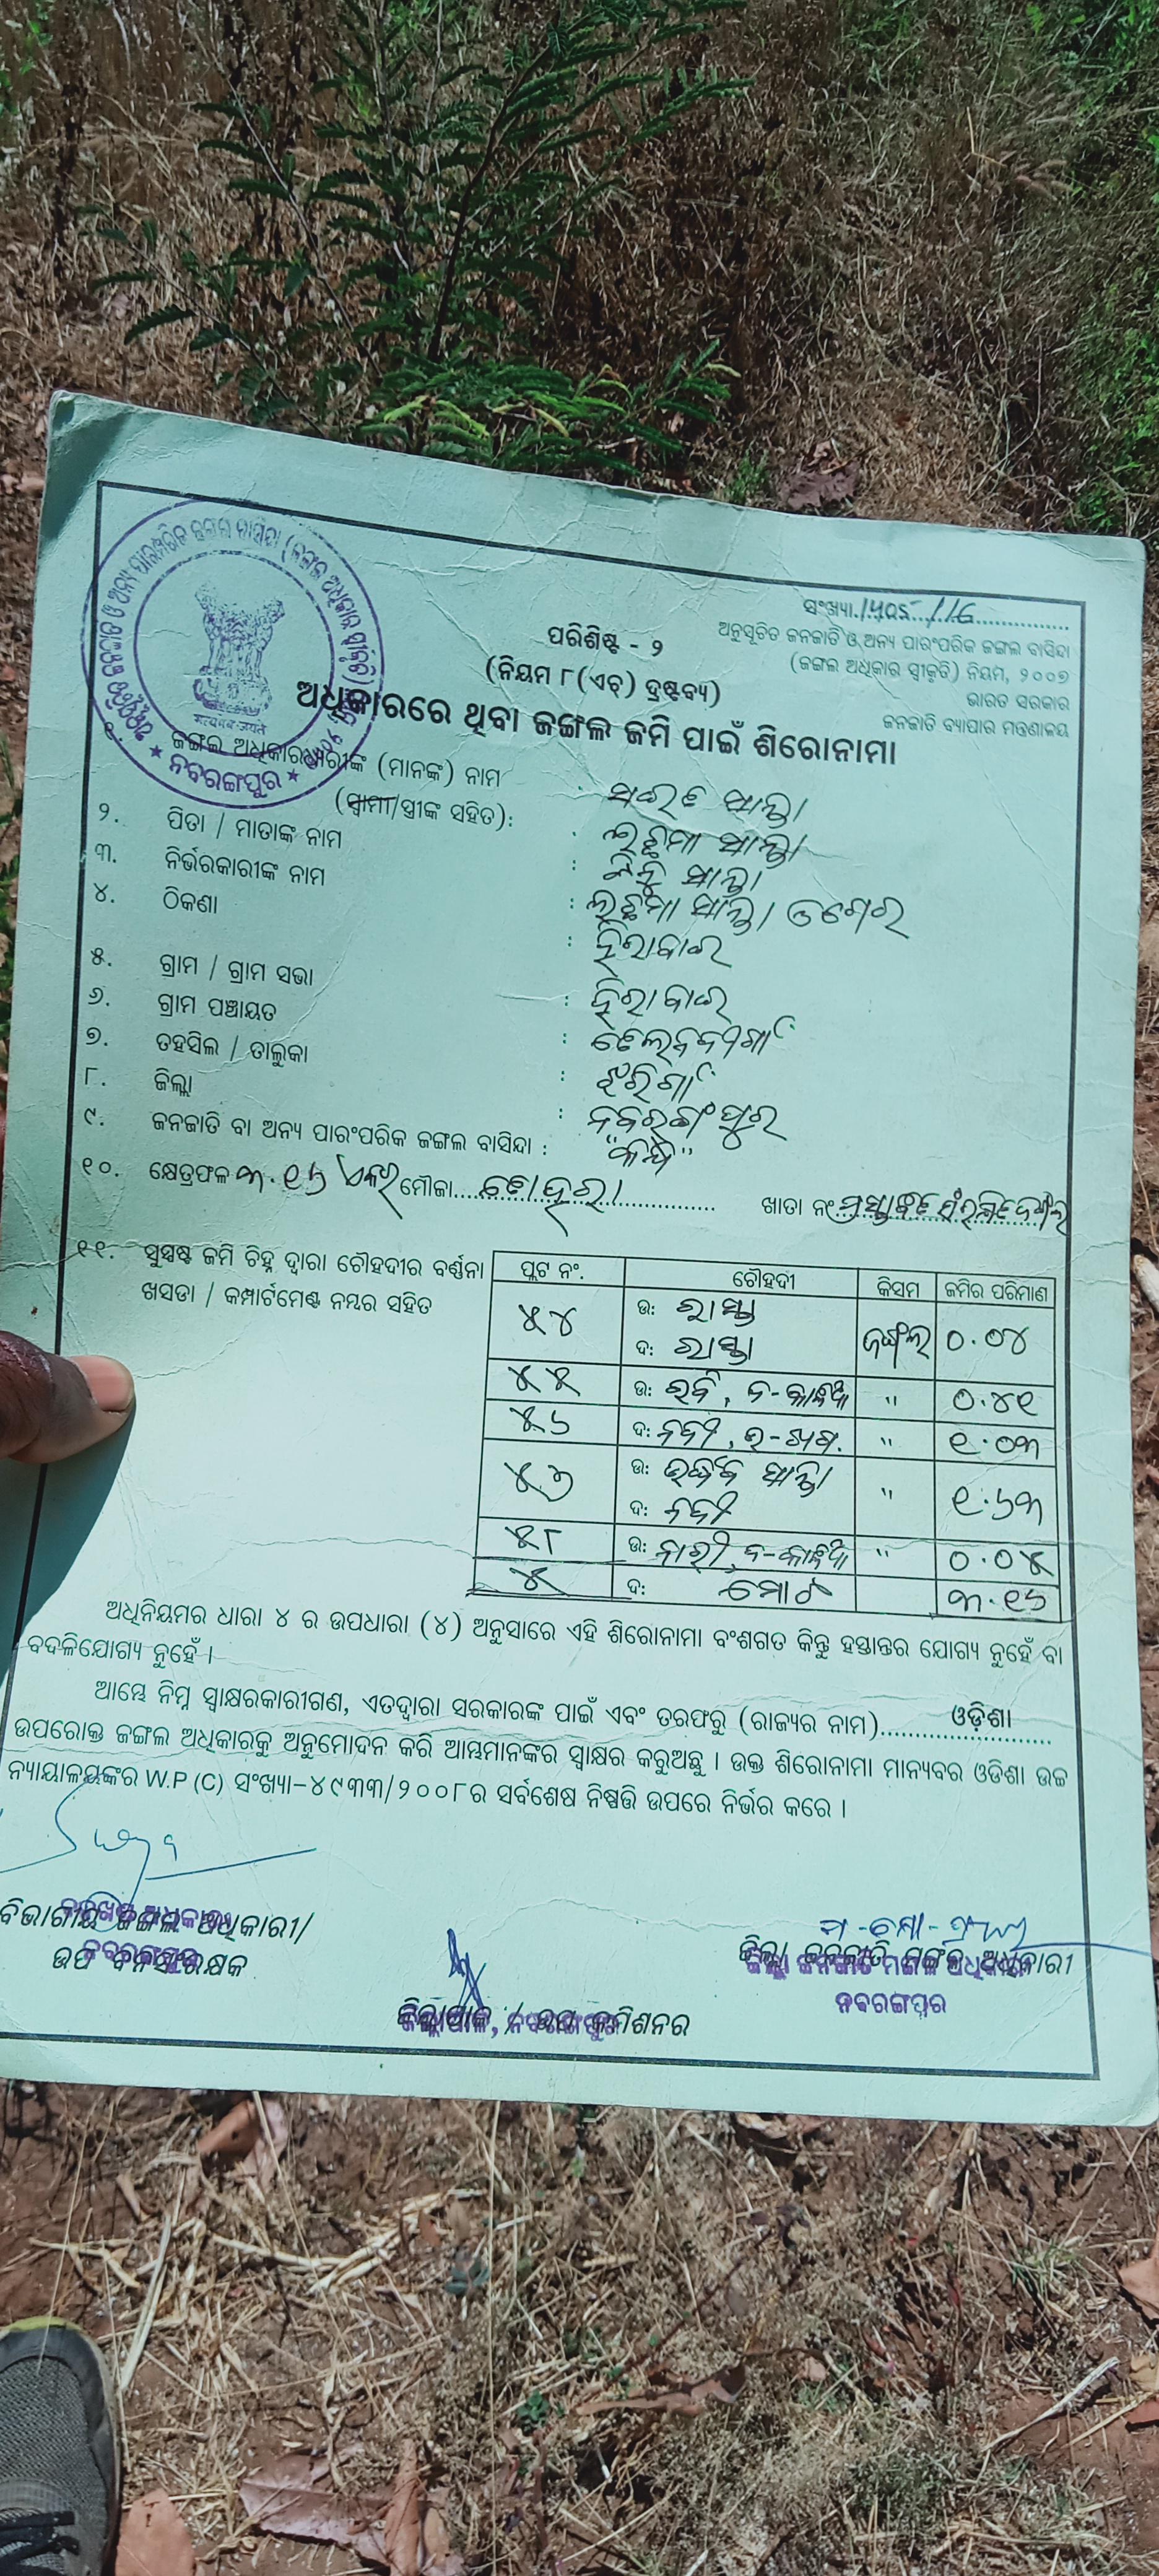 ସଂଖ୍ୟା
ଅନୁସୂଚିତ ଜନଜାତି ଓ ଅନ୍ୟ ପାରଂପରିକ ଜଙ୍ଗଲ ବାସିନ୍ଦା
(ଜଙ୍ଗଲ ଅଧିକାର ସ୍ୱୀକୃତି) ନିୟମ, ୨୦୦୭
ଭାରତ ସରକାର
ଜନଜାତି ବ୍ୟାପାର ମନ୍ତ୍ରଣାଳୟ
ପରିଶିଷ୍ଟ - ୨
(ନିୟମ ୮(ଏଚ୍) ଦ୍ରଷ୍ଟବ୍ୟ)
ଅଧିକାରରେ ଥିବା ଜଙ୍ଗଲ ଜମି ପାଇଁ ଶିରୋନାମା
୧. ଜଙ୍ଗଲ ଅଧିକାରଧାରୀଙ୍କ (ମାନଙ୍କ) ନାମ
(ସ୍ୱାମୀ/ସ୍ତ୍ରୀଙ୍କ ସହିତ): ସାନ୍ତା
୨. ପିତା / ମାତାଙ୍କ ନାମ : ଲଛମା ସାନ୍ତା
୩. ନିର୍ଭରକାରୀଙ୍କ ନାମ : ସାନ୍ତା
୪. ଠିକଣା : ଲଛମା ସାନ୍ତା
: ହିରାବାଇ
୫. ଗ୍ରାମ / ଗ୍ରାମ ସଭା : ହିରାବାଇ
୬. ଗ୍ରାମ ପଞ୍ଚାୟତ :
୭. ତହସିଲ / ତାଲୁକା : ଝରିଗାଁ
୮. ଜିଲ୍ଲା : ନବରଙ୍ଗପୁର
୯. ଜନଜାତି ବା ଅନ୍ୟ ପାରଂପରିକ ଜଙ୍ଗଲ ବାସିନ୍ଦା :
୧୦. କ୍ଷେତ୍ରଫଳ ୩.୧୬ ଏକର ମୌଜା ଖାତା ନଂ
୧୧. ସୁସ୍ପଷ୍ଟ ଜମି ଚିହ୍ନ ଦ୍ୱାରା ଚୌହଦୀର ବର୍ଣ୍ଣନା
ଖସଡା / କମ୍ପାର୍ଟମେଣ୍ଟ ନମ୍ବର ସହିତ
ପ୍ଲଟ ନଂ. ଚୌହଦୀ କିସମ ଜମିର ପରିମାଣ
୫୪ ଉ: ରାସ୍ତା ଜଙ୍ଗଲ ୦.୦୪
ଦ: ରାସ୍ତା
୫୫ ଉ: " ୦.୪୧
୫୬ ଦ: ନଦୀ " ୧.୦୩
୫୭ ଉ: ସାନ୍ତା " ୧.୬୩
ଦ: ନଦୀ
୫୮ ଉ: " ୦.୦୫
୫ ଦ: ମୋଟ ୩.୧୬
ଅଧିନିୟମର ଧାରା ୪ ର ଉପଧାରା (୪) ଅନୁସାରେ ଏହି ଶିରୋନାମା ବଂଶଗତ କିନ୍ତୁ ହସ୍ତାନ୍ତର ଯୋଗ୍ୟ ନୁହେଁ ବା
ବଦଳିଯୋଗ୍ୟ ନୁହେଁ ।
ଆମ୍ଭେ ନିମ୍ନ ସ୍ୱାକ୍ଷରକାରୀଗଣ, ଏତଦ୍ୱାରା ସରକାରଙ୍କ ପାଇଁ ଏବଂ ତରଫରୁ (ରାଜ୍ୟର ନାମ) ଓଡ଼ିଶା
ଉପରୋକ୍ତ ଜଙ୍ଗଲ ଅଧିକାରକୁ ଅନୁମୋଦନ କରି ଆମ୍ଭମାନଙ୍କର ସ୍ୱାକ୍ଷର କରୁଅଛୁ । ଉକ୍ତ ଶିରୋନାମା ମାନ୍ୟବର ଓଡିଶା ଉଚ୍ଚ
ନ୍ୟାୟାଳୟଙ୍କର W.P (C) ସଂଖ୍ୟା-୪୯୩୩/୨୦୦୮ର ସର୍ବଶେଷ ନିଷ୍ପତ୍ତି ଉପରେ ନିର୍ଭର କରେ ।
ବିଭାଗୀୟ ଜଙ୍ଗଲ ଅଧିକାରୀ/
ଉପ ବନସଂରକ୍ଷକ
ଜିଲ୍ଲା ଜନଜାତି ମଙ୍ଗଳ ଅଧିକାରୀ
ନବରଙ୍ଗପୁର
ଜିଲ୍ଲାପାଳ / ଉପ କମିଶନର